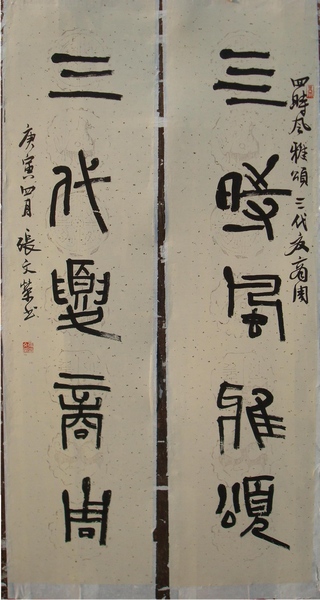 四時風雅頌 三代夏商周
亖時風雅頌
三代夏商周
庚寅四月 張文榮书